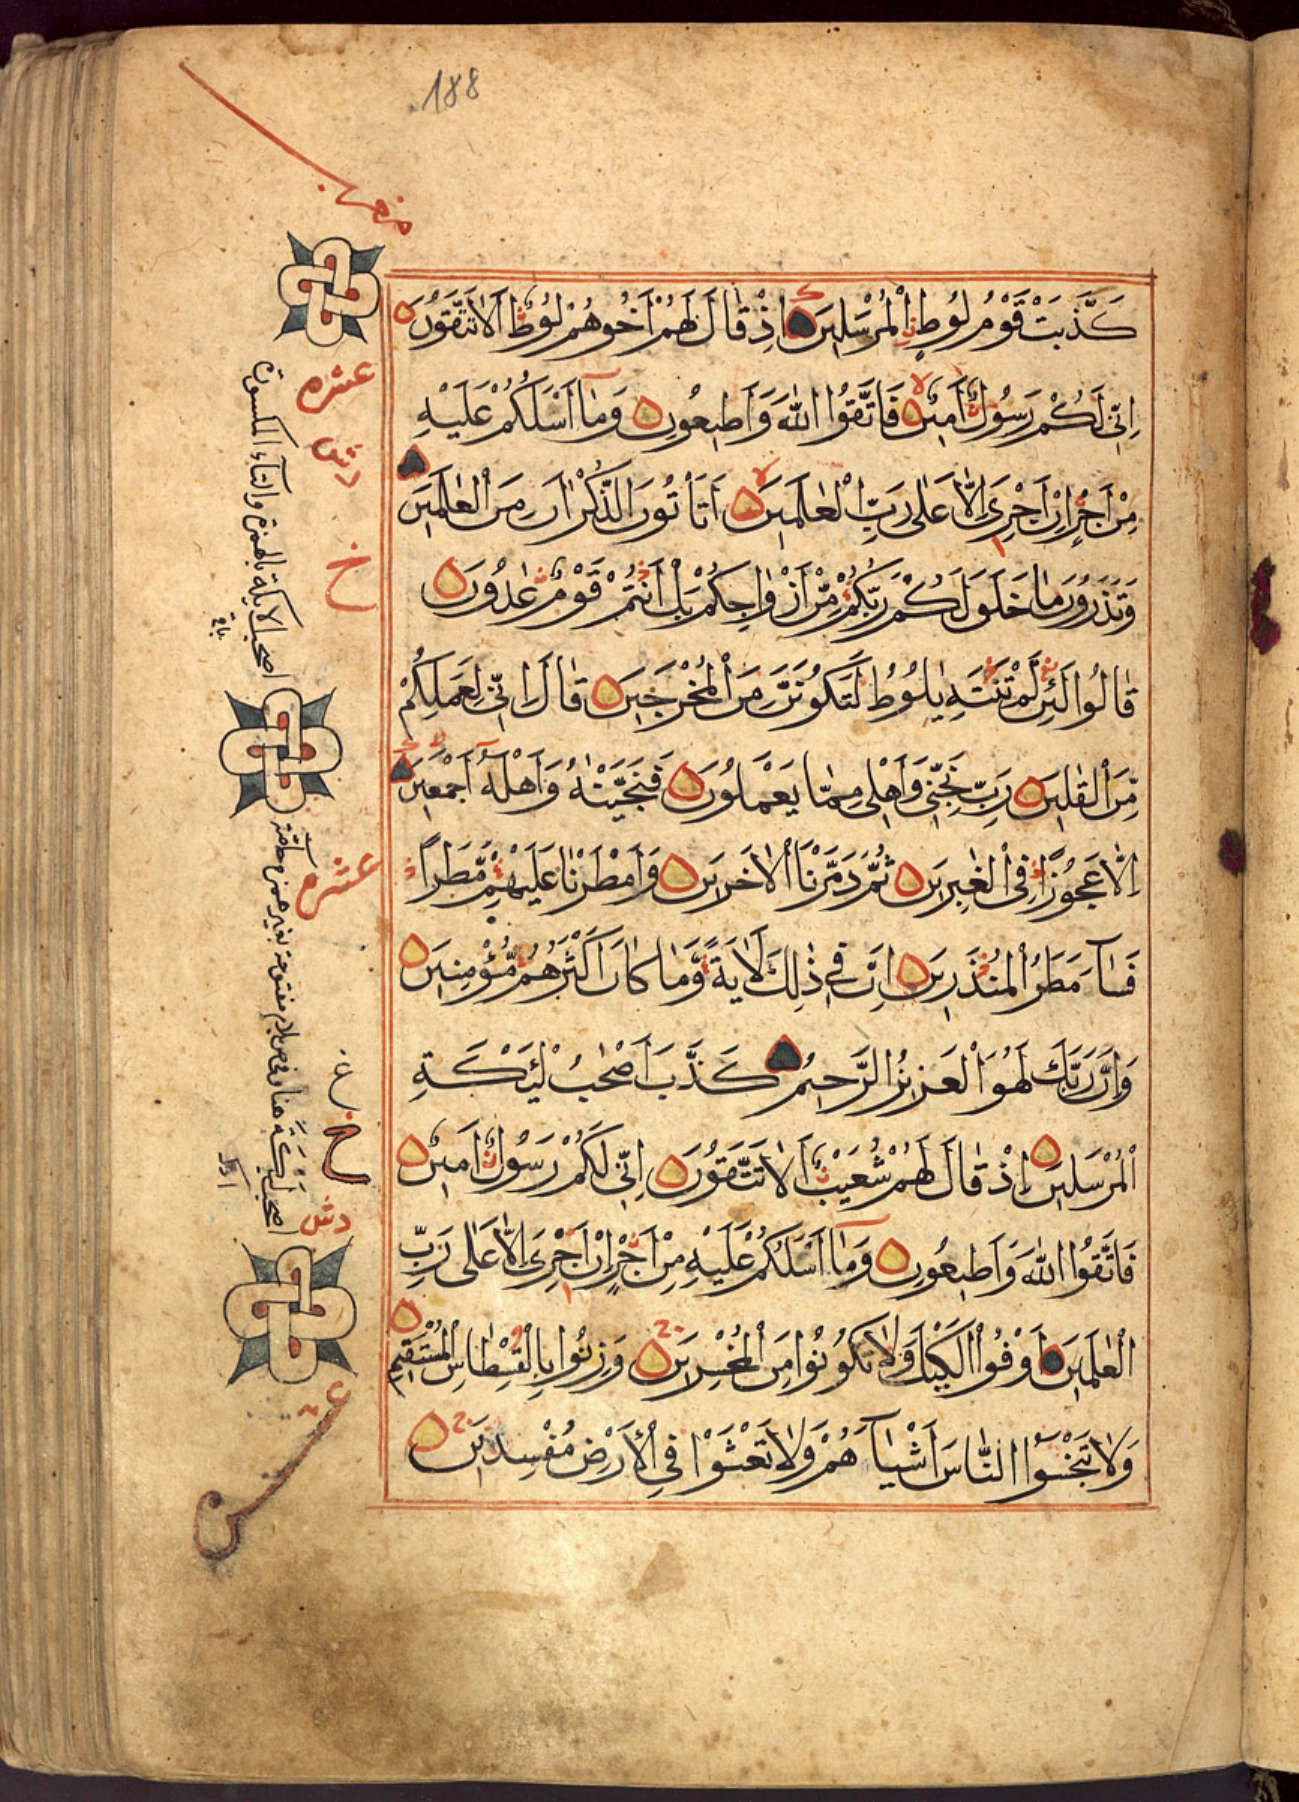 188
كَذَّبَتْ قَوْمُ لُوطٍ الْمُرْسَلِينَ اِذْ قَالَ لَهُمْ اَخُوهُمْ لُوطٌ اَلَا تَتَّقُونَ
اِنِّي لَكُمْ رَسُولٌ اَمِينٌ فَاتَّقُوا اللّٰهَ وَاَطِيعُونِ وَمَآ اَسْـَٔلُكُمْ عَلَيْهِ
مِنْ اَجْرٍ اِنْ اَجْرِيَ اِلَّا عَلٰى رَبِّ الْعٰلَمِينَ اَتَأْتُونَ الذُّكْرَانَ مِنَ الْعٰلَمِينَ
وَتَذَرُونَ مَا خَلَقَ لَكُمْ رَبُّكُمْ مِّنْ اَزْوٰجِكُمْ بَلْ اَنْتُمْ قَوْمٌ عٰدُونَ
قَالُوا لَئِنْ لَّمْ تَنْتَهِ يٰلُوطُ لَتَكُونَنَّ مِنَ الْمُخْرَجِينَ قَالَ اِنِّي لِعَمَلِكُمْ
مِّنَ الْقَالِينَ رَبِّ نَجِّنِي وَاَهْلِي مِمَّا يَعْمَلُونَ فَنَجَّيْنٰهُ وَاَهْلَهُٓ اَجْمَعِينَ
اِلَّا عَجُوزًا فِي الْغٰبِرِينَ ثُمَّ دَمَّرْنَا الْاٰخَرِينَ وَاَمْطَرْنَا عَلَيْهِمْ مَّطَرًا
فَسَآءَ مَطَرُ الْمُنْذَرِينَ اِنَّ فِي ذٰلِكَ لَاٰيَةً وَّمَا كَانَ اَكْثَرُهُمْ مُّؤْمِنِينَ
وَاِنَّ رَبَّكَ لَهُوَ الْعَزِيزُ الرَّحِيمُ كَذَّبَ اَصْحٰبُ لْئَيْكَةِ
الْمُرْسَلِينَ اِذْ قَالَ لَهُمْ شُعَيْبٌ اَلَا تَتَّقُونَ اِنِّي لَكُمْ رَسُولٌ اَمِينٌ
فَاتَّقُوا اللّٰهَ وَاَطِيعُونِ وَمَآ اَسْـَٔلُكُمْ عَلَيْهِ مِنْ اَجْرٍ اِنْ اَجْرِيَ اِلَّا عَلٰى رَبِّ
الْعٰلَمِينَ اَوْفُوا الْكَيْلَ وَلَا تَكُونُوا مِنَ الْمُخْسِرِينَ وَزِنُوا بِالْقِسْطَاسِ الْمُسْتَقِيمِ
وَلَا تَبْخَسُوا النَّاسَ اَشْيَآءَهُمْ وَلَا تَعْثَوْا فِي الْاَرْضِ مُفْسِدِينَ
عشره
دش
خ
اصحب الايكة بالهمزة والتاء المكسورة
عشره
ع
خ
دش